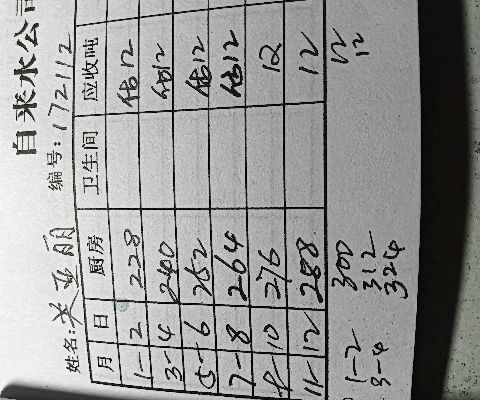 自来水公司
编号:172112
姓名:关亚丽
月 日 厨房 卫生间 应收吨
1-2 228 估12
3-4 240 估12
5-6 252 估12
7-8 264 估12
8-10 276 12
11-12 288 12
300 12
1-2 312 12
3-4 324